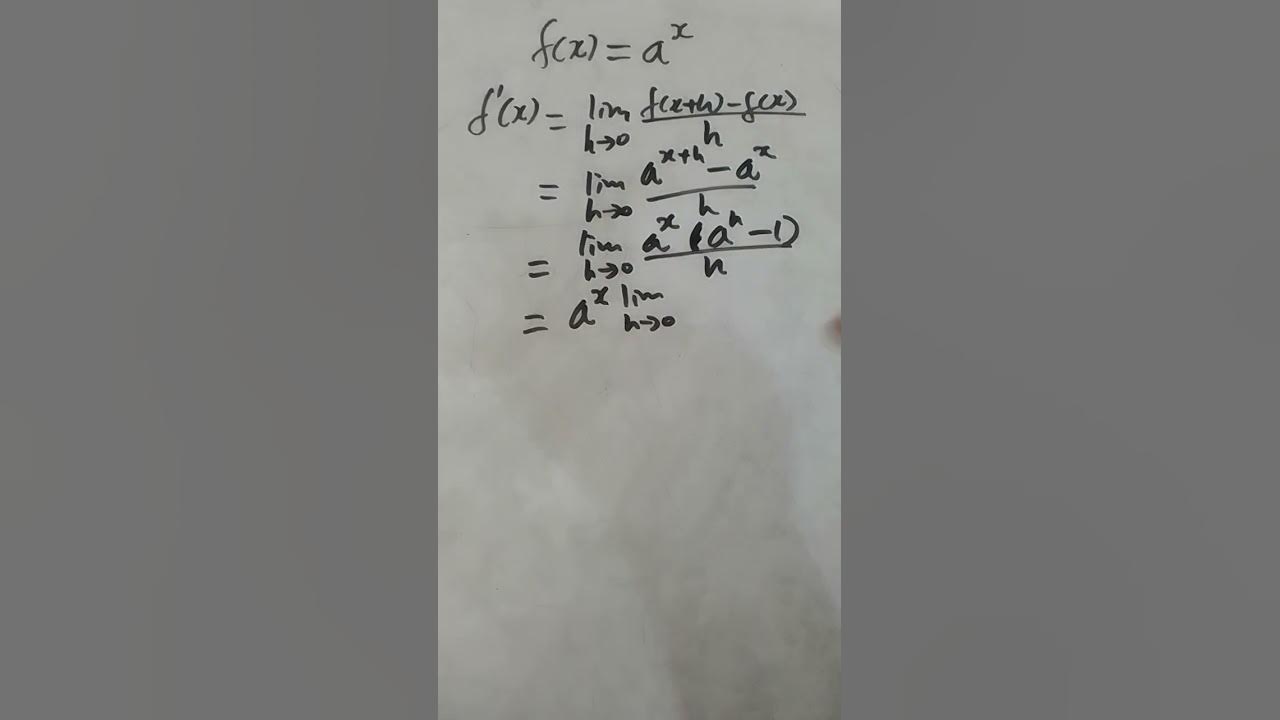 f(x) = a^x
f'(x) = lim h→0 f(x+h) - f(x) / h
= lim h→0 a^(x+h) - a^x / h
= lim h→0 a^x (a^h - 1) / h
= a^x lim h→0